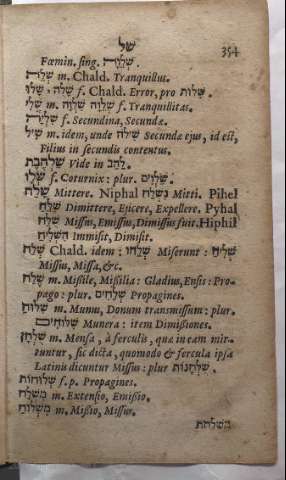 של
354
Fœmin. sing. שְׁלֵוָה.
שָׁלֵוָה m. Chald. Tranquillus.
שָׁלָה, שָׁלוּ f. Chald. Error, pro שָׁלוּת.
שְׁלִי m. שַׁלְוָה שָׁלְוָה f. Tranquillitas.
שִׁלְיָה f. Secundina, Secundæ.
שִׁיל m. idem, unde שִׁילֹה Secundæ ejus, id est,
Filius in secundis contentus.
שַׁלְהֶבֶת Vide in לָהַב.
שְׂלָו f. Coturnix: plur. שַׂלְוִים.
שָׁלַח Mittere. Niphal נִשְׁלַח Mitti. Pihel
שִׁלַּח Dimittere, Ejicere, Expellere. Pyhal
שֻׁלַּח Missus, Emissus, Dimissus fuit. Hiphil
הִשְׁלִיחַ Immisit, Dimisit.
שְׁלַח Chald. idem: שְׁלַחוּ Miserunt: שְׁלִיחַ
Missus, Missa, &c.
שֶׁלַח m. Missile, Missilia: Gladius, Ensis: Pro-
pago: plur. שְׁלָחִים Propagines.
שִׁלּוּחַ m. Munus, Donum transmissum: plur.
שִׁלּוּחִים Munera: item Dimissiones.
שֻׁלְחָן m. Mensa, à ferculis, quæ in eam mit-
tuntur, sic dicta, quomodo & fercula ipsa
Latinis dicuntur Missus: plur שֻׁלְחָנוֹת.
שְׁלֻחוֹת f. p. Propagines.
מִשְׁלָח m. Extensio, Emissio.
מִשְׁלוֹחַ m. Missio, Missus.
משלחת